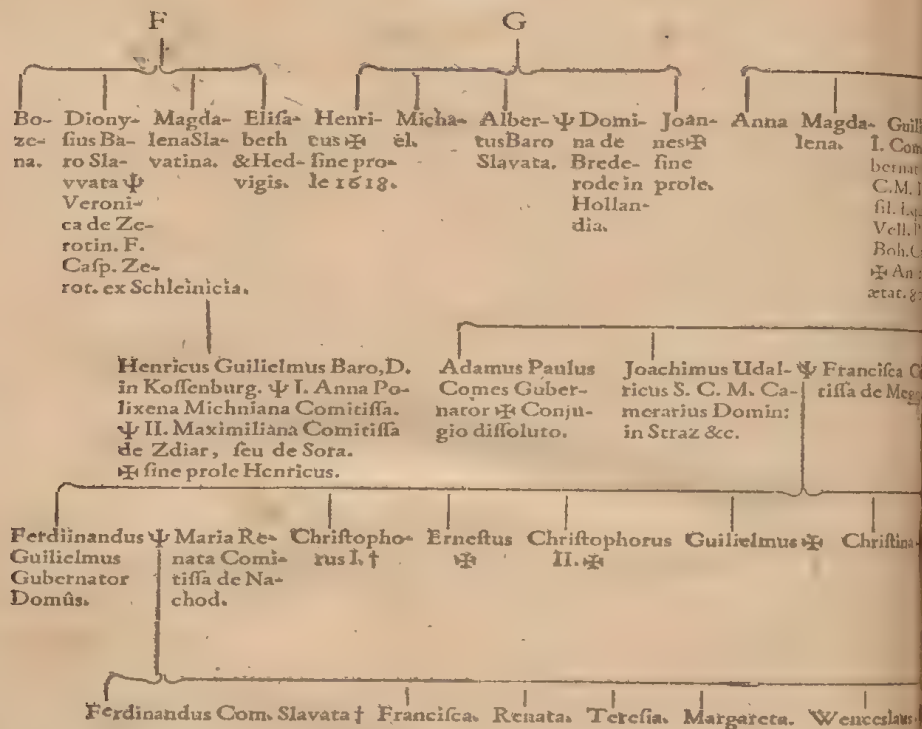 F
G
Bo-
ze-
na.
Diony-
ſius Ba-
ro Sla-
vvata Ψ
Veroni-
ca de Ze-
rotin. F.
Caſp. Ze-
rot. ex Schleinicia.
Magda-
lena Sla-
vatina.
Eliſa-
beth
& Hed-
vigis.
Henri-
cus ✠
ſine pro-
le 1618.
Micha-
el.
Alber- Ψ
tus Baro
Slavata.
Domi-
na de
Brede-
rode in
Hollan-
dia.
Joan-
nes ✠
ſine
prole.
Anna
Magda-
lena.
I. Com
C.M.
fil.
Vell.
Boh.
✠ An
ætat.
Henricus Guilielmus Baro, D.
in Koſſenburg. Ψ I. Anna Po-
lixena Michniana Comitiſſa.
Ψ II. Maximiliana Comitiſſa
de Zdiar, ſeu de Sora.
✠ ſine prole Henricus.
Adamus Paulus
Comes Guber-
nator ✠ Conju-
gio diſſoluto.
Joachimus Udal- Ψ
ricus S. C. M. Ca-
merarius Domin:
in Straz &c.
Franciſca
tiſſa de
Ferdiinandus Ψ
Guilielmus
Gubernator
Domûs.
Maria Re-
nata Comi-
tiſſa de Na-
chod.
Chriſtopho-
rus I. †
Erneſtus
✠
Chriſtophorus
II. ✠
Guilielmus ✠
Chriſtina
Ferdinandus Com. Slavata † Franciſca. Renata. Tereſia. Margareta. Wenceslaus